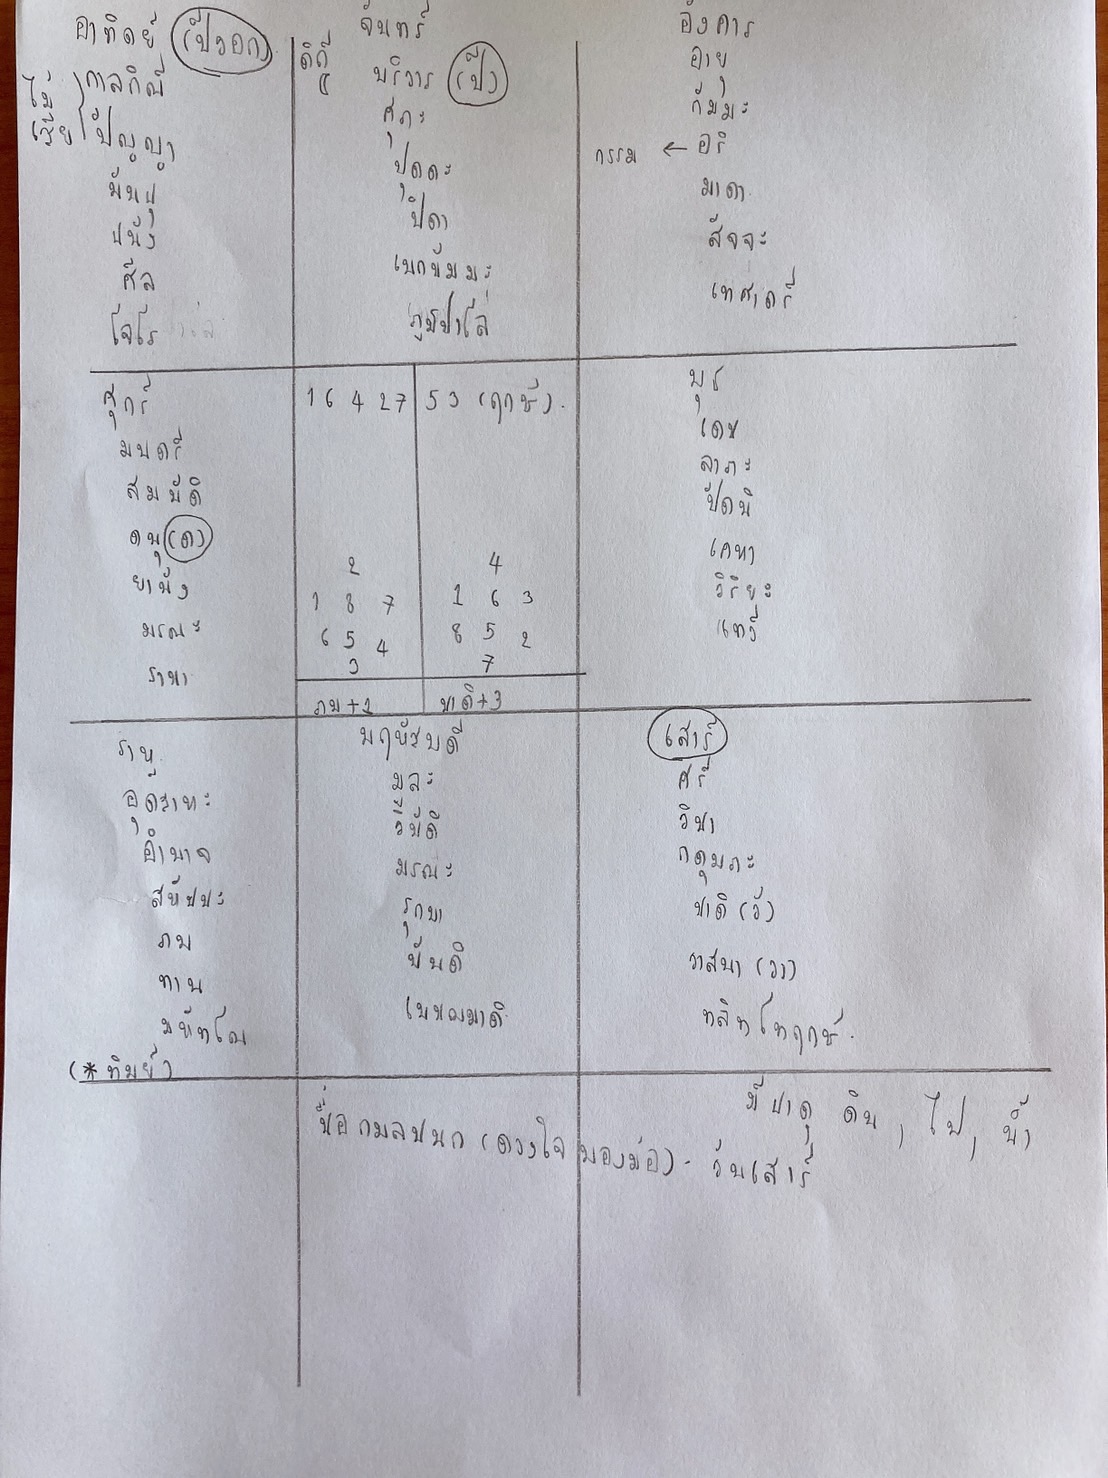 อาทิตย์ (ปีงอก)
ไม้
เสีย
กาลกิณี
ปัญญา
มันปุ
ปนัง
ศีล
โจโร
จันทร์
ดิถี
บริวาร (ปี)
ศุภะ
ปุตตะ
ปิตา
เนกขัมมะ
ภูมิปาโล
อังคาร
อายุ
กัมมะ
กรรม ← อริ
มาตา
สัจจะ
เทศาตรี
ศุกร์
มนตรี
สมบัติ
ตนุ (ต)
ยานัง
มรณะ
ราชา
1 6 4 2 7
5 3 (ฤกษ์).
2
1 8 7
6 5 4
3
4
1 6 3
8 5 2
7
ภพ+2
ชาติ+3
พุธ
เดช
ลาภะ
ปัตนิ
เคหา
วิริยะ
เทวี
ราหู
อุตสาหะ
อำนาจ
สหัชชะ
ภพ
ทาน
มหัทโณ
(*ทิมย์)
พฤหัสบดี
มูละ
วิบัติ
มรณะ
รุกขา
พันดิ
เสาร์
ศรี
วิชา
กดุมภะ
ชาติ (วั)
วาสนา (วา)
ทลิทโทฤกษ์.
มีธาตุ ดิน, ไฟ, น้ำ
ชื่อ กมลชนก (ดวงใจของพ่อ) - วันเสาร์